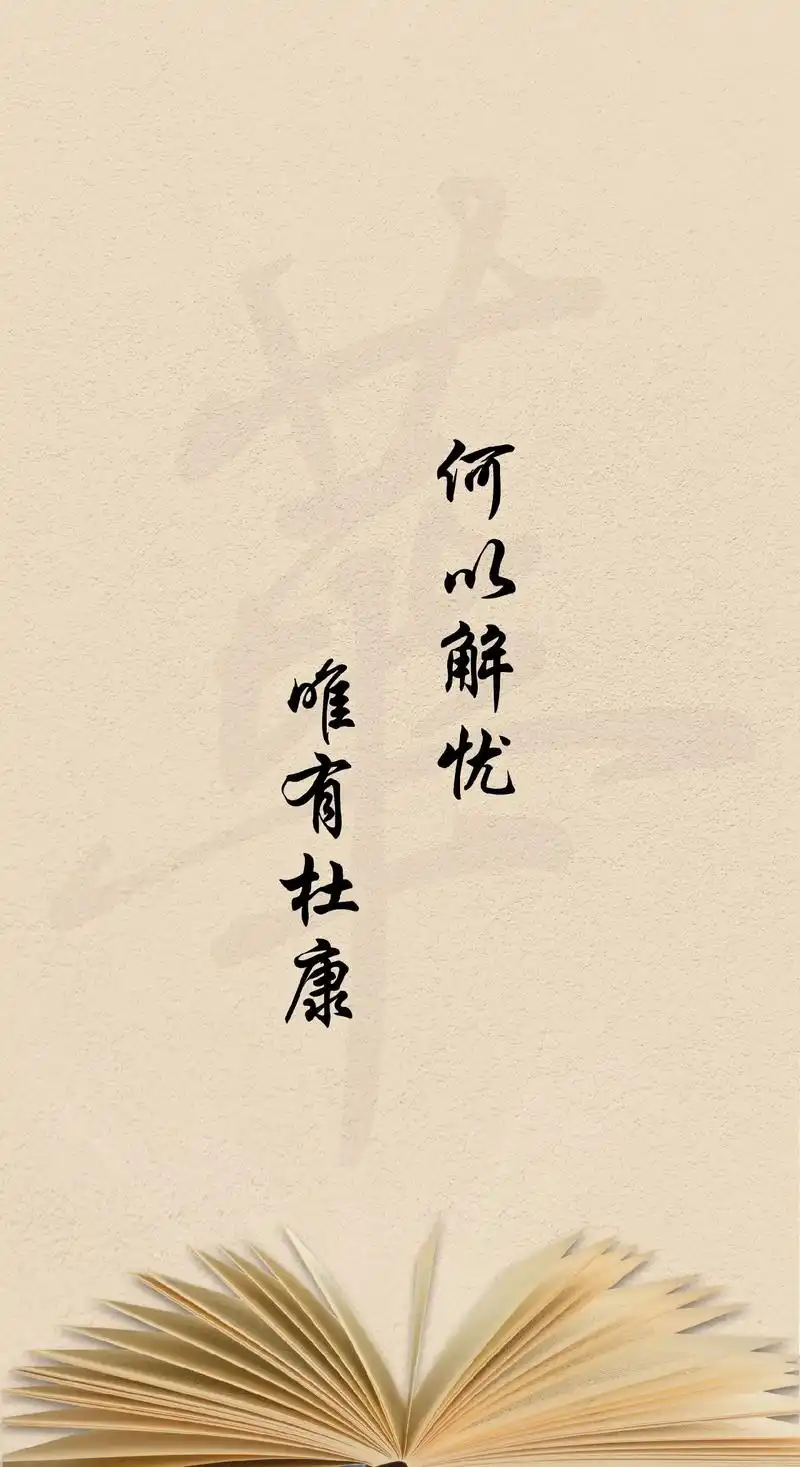 何以解忧
唯有杜康
華